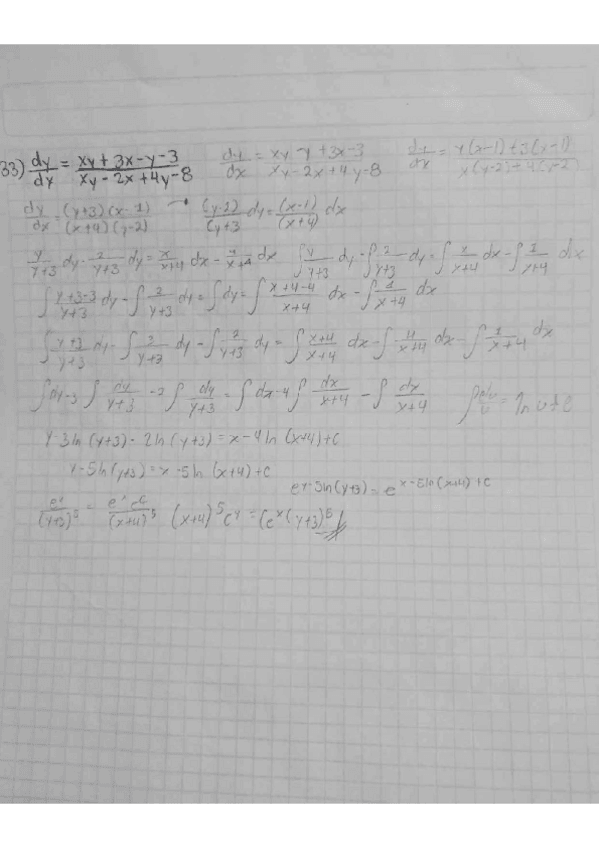 33) dy/dx = (xy + 3x - y - 3)/(xy - 2x + 4y - 8)   dy/dx = (xy - y + 3x - 3)/(xy - 2x + 4y - 8)   dy/dx = (y(x-1) + 3(x-1))/(x(y-2) + 4(y-2))
dy/dx = (y+3)(x-1)/(x+4)(y-2) → (y-2)/(y+3) dy = (x-1)/(x+4) dx
y/(y+3) dy - 2/(y+3) dy = x/(x+4) dx - 1/(x+4) dx   ∫ y/(y+3) dy - ∫ 2/(y+3) dy = ∫ x/(x+4) dx - ∫ 1/(x+4) dx
∫ (y+3-3)/(y+3) dy - ∫ 2/(y+3) dy = ∫ dy = ∫ (x+4-4)/(x+4) dx - ∫ 1/(x+4) dx
∫ (y+3)/(y+3) dy - ∫ 3/(y+3) dy - ∫ 2/(y+3) dy = ∫ (x+4)/(x+4) dx - ∫ 4/(x+4) dx - ∫ 1/(x+4) dx
∫ dy - 3 ∫ dy/(y+3) - 2 ∫ dy/(y+3) = ∫ dx - 4 ∫ dx/(x+4) - ∫ dx/(x+4)   ∫ du/u = ln u + c
y - 3 ln (y+3) - 2 ln (y+3) = x - 4 ln (x+4) + c
y - 5 ln (y+3) = x - 5 ln (x+4) + c
e^(y - 5 ln (y+3)) = e^(x - 5 ln (x+4) + c)
e^y/(y+3)^5 = e^x e^c/(x+4)^5   (x+4)^5 e^y = C e^x (y+3)^5